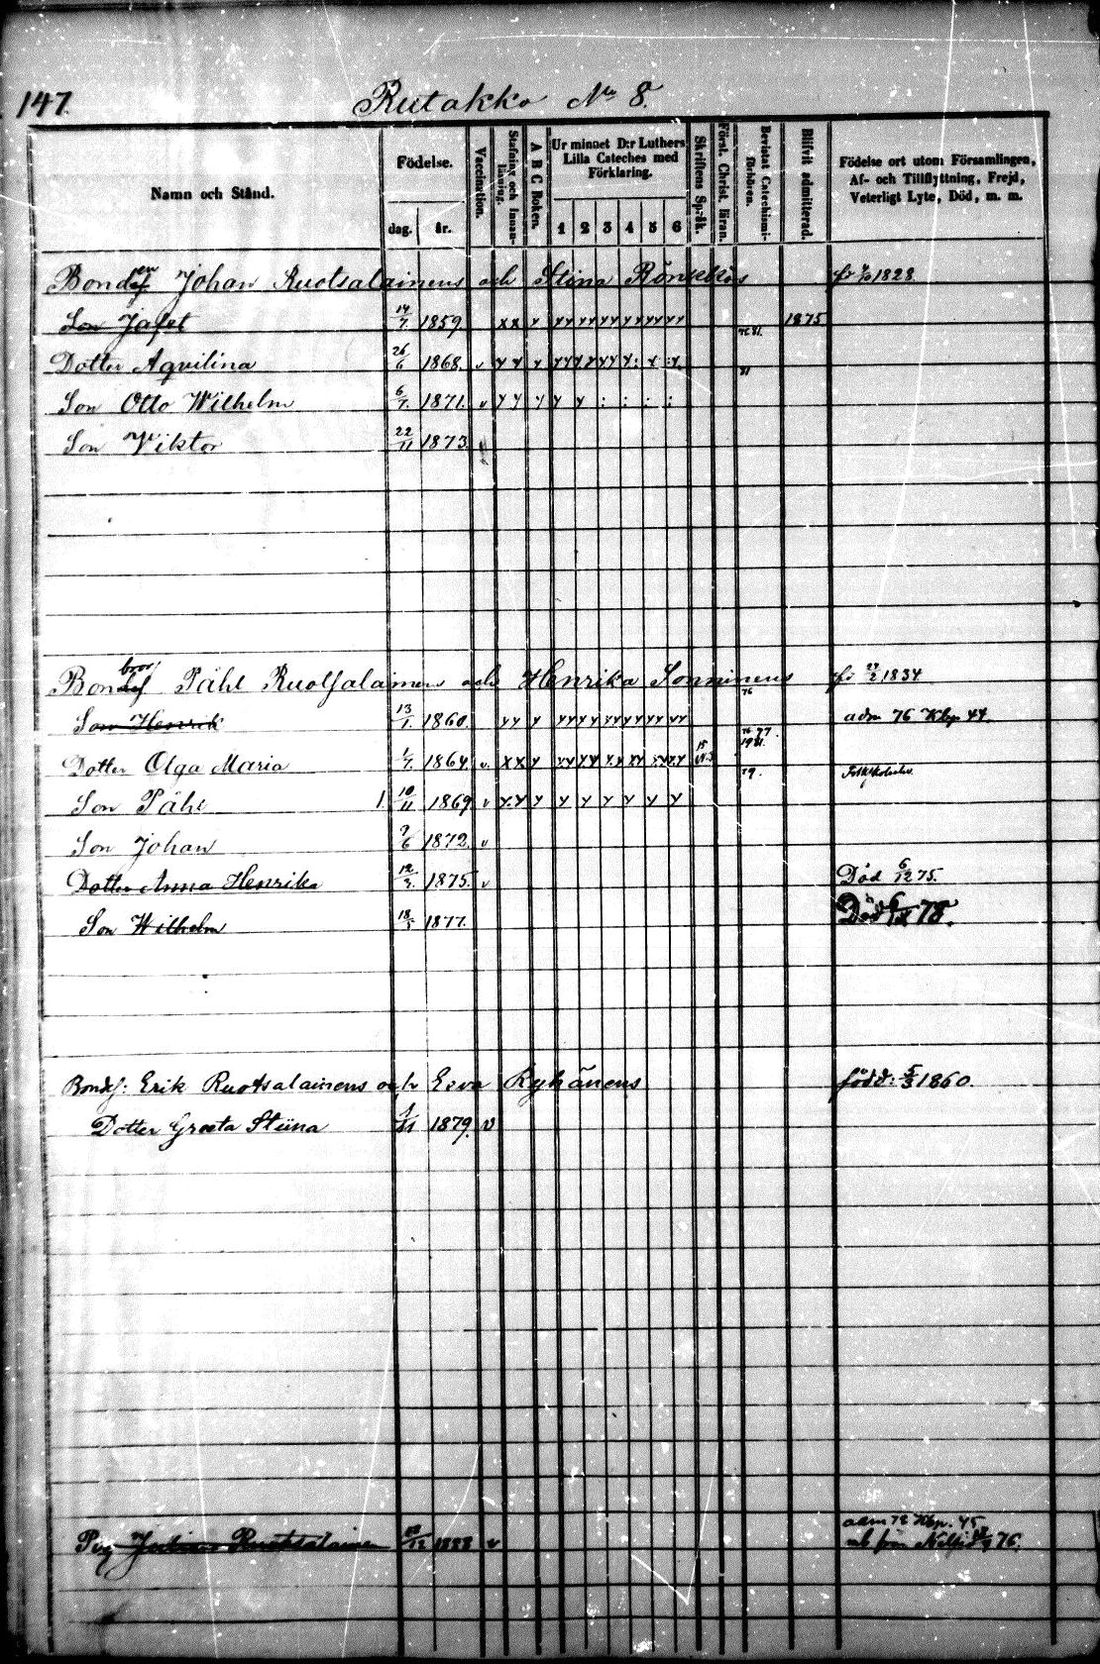 147.
Rutakko No 8.
Namn och Stånd.
Födelse.
dag.
år.
Vaccination.
Stafning och Innanläsning.
A B C Boken.
Ur minnet D:r Luthers Lilla Cateches med Förklaring.
1 2 3 4 5 6
Skriftens Språk.
Först. Christ. läran.
Bevistat Catechismiförhören.
Blifvit admitterad.
Födelse ort utom Församlingen, Af- och Tillflyttning, Frejd, Veterligt Lyte, Död, m. m.
Bonden Johan Ruotsalainens och Stina Rönkkös 1828
Son Jafet 14/7 1859. 1875
Dotter Aqvilina 26/6 1868. v
Son Otto Wilhelm 6/7. 1871. v
Son Viktor 22/11 1873.
Bond bror Påhl Ruotsalainens och Henrika Sonninens 27/2 1834
Son Henrik 13/1. 1860. adm 76 Kbp 44.
Dotter Olga Maria 1/7. 1864 v.
Son Påhl 10/11 1869 v
Son Johan 9/6 1872. v
Dotter Anna Henrika 12/3. 1875. v Död 6/12 75.
Son Wilhelm 18/5 1877. Död 78.
Bondes: Erik Ruotsalainens och Eeva Ryhänens född: 5/3 1860.
Dotter Greta Stiina 1879. v
Pig Ruotsalainen v adm 78 Kbp. 45
76.